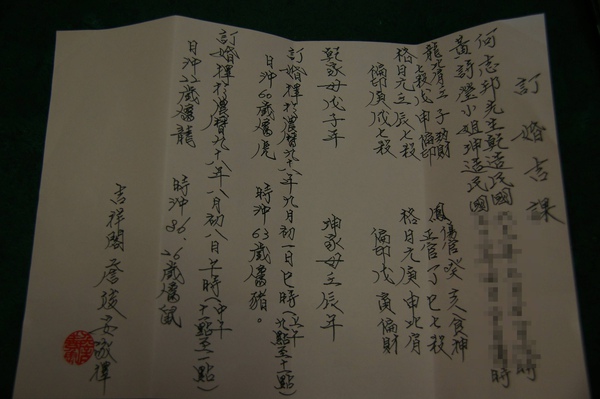 訂婚吉課
何志邦先生乾造民國 時
黃詩瑩小姐坤造民國 時
龍 偏官壬子劫財 鳳 傷官癸亥食神
七殺戊申偏印 正官丁巳七殺
格日元壬辰七殺 格日元庚申比肩
偏印庚戌七殺 偏印戊寅偏財
乾家母戊子年 坤家母壬辰年
訂婚擇於農曆九十八年九月初一日巳時(上午九點至十一點)
日沖60歲屬虎 時沖63歲屬豬。
訂婚擇於農曆九十八年八月初八日午時(中午十一點至一點)
日沖22歲屬龍 時沖86.26歲屬鼠
吉祥閣 敬擇